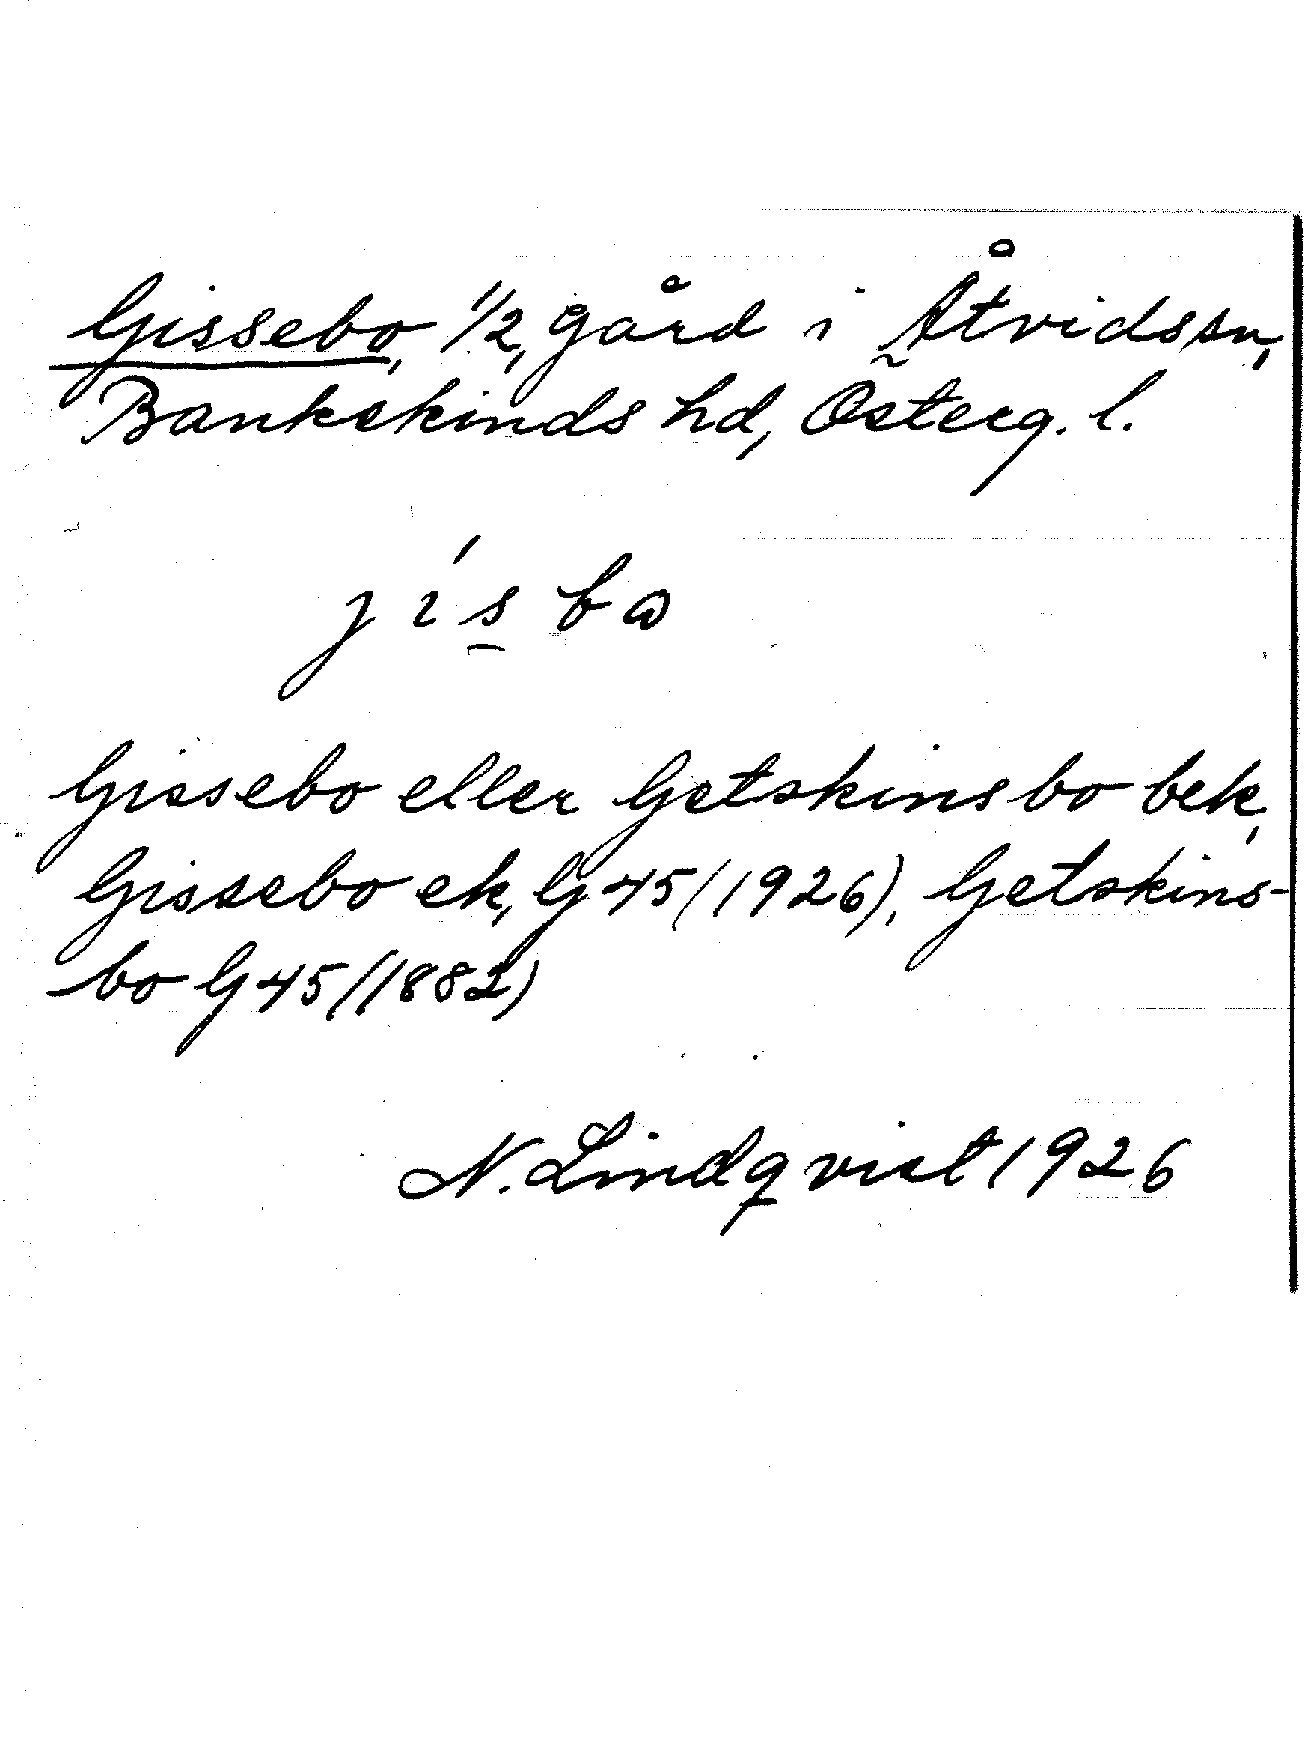 Gissebo, 1/2 gård i Åtvids sn,
Bankekinds hd, Österg. l.
jísbω
Gissebo eller Getskinsbo bek,
Gissebo ek, G 45/1926), Getskins-
bo G 45/1882)
N. Lindqvist 1926